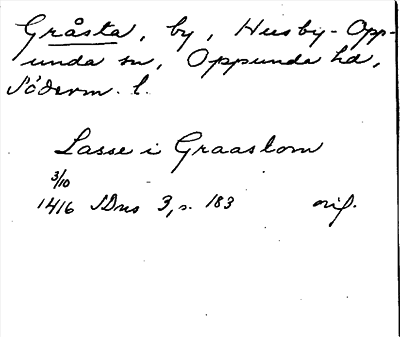 Gråsta, by, Husby-Opp-
unda sn, Oppunda hd,
Söderm. l.
Lasse i Graastom
3/10
1416 SDns 3, s. 183 orig.